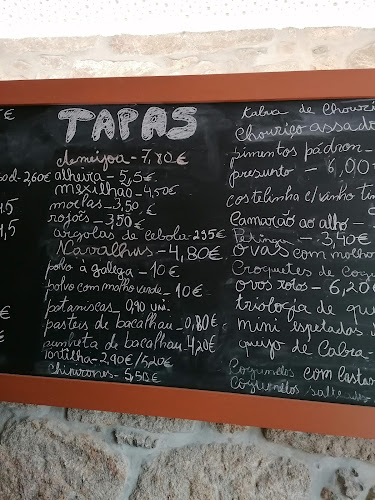 TAPAS
ameijoa - 7,80 €
alheira - 5,5 €
mexilhão - 4,50€
moelas - 3,50 €
rojois - 3,50 €
argolas de cebola - 2.95€
Navalhas - 4,80€
polvo à galega - 10 €
polvo com molho verde - 10€
pataniscas - 0,90 uni.
pasteis de bacalhau - 0,80€
punheta de bacalhau 4,20€
tortilha - 2,90€/5,20€
chipirones - 5,50€
2,60€
Tabua de
chouriço assado
pimentos pádron -
presunto - 6,00
costelinha c/ vinho
Camarão ao alho -
- 3,40€
ovas com molho
Croquetes de
ovos rotos - 6,20€
triologia de
mini espetadas
queijo de Cabra
Cogumelos com
Cogumelos